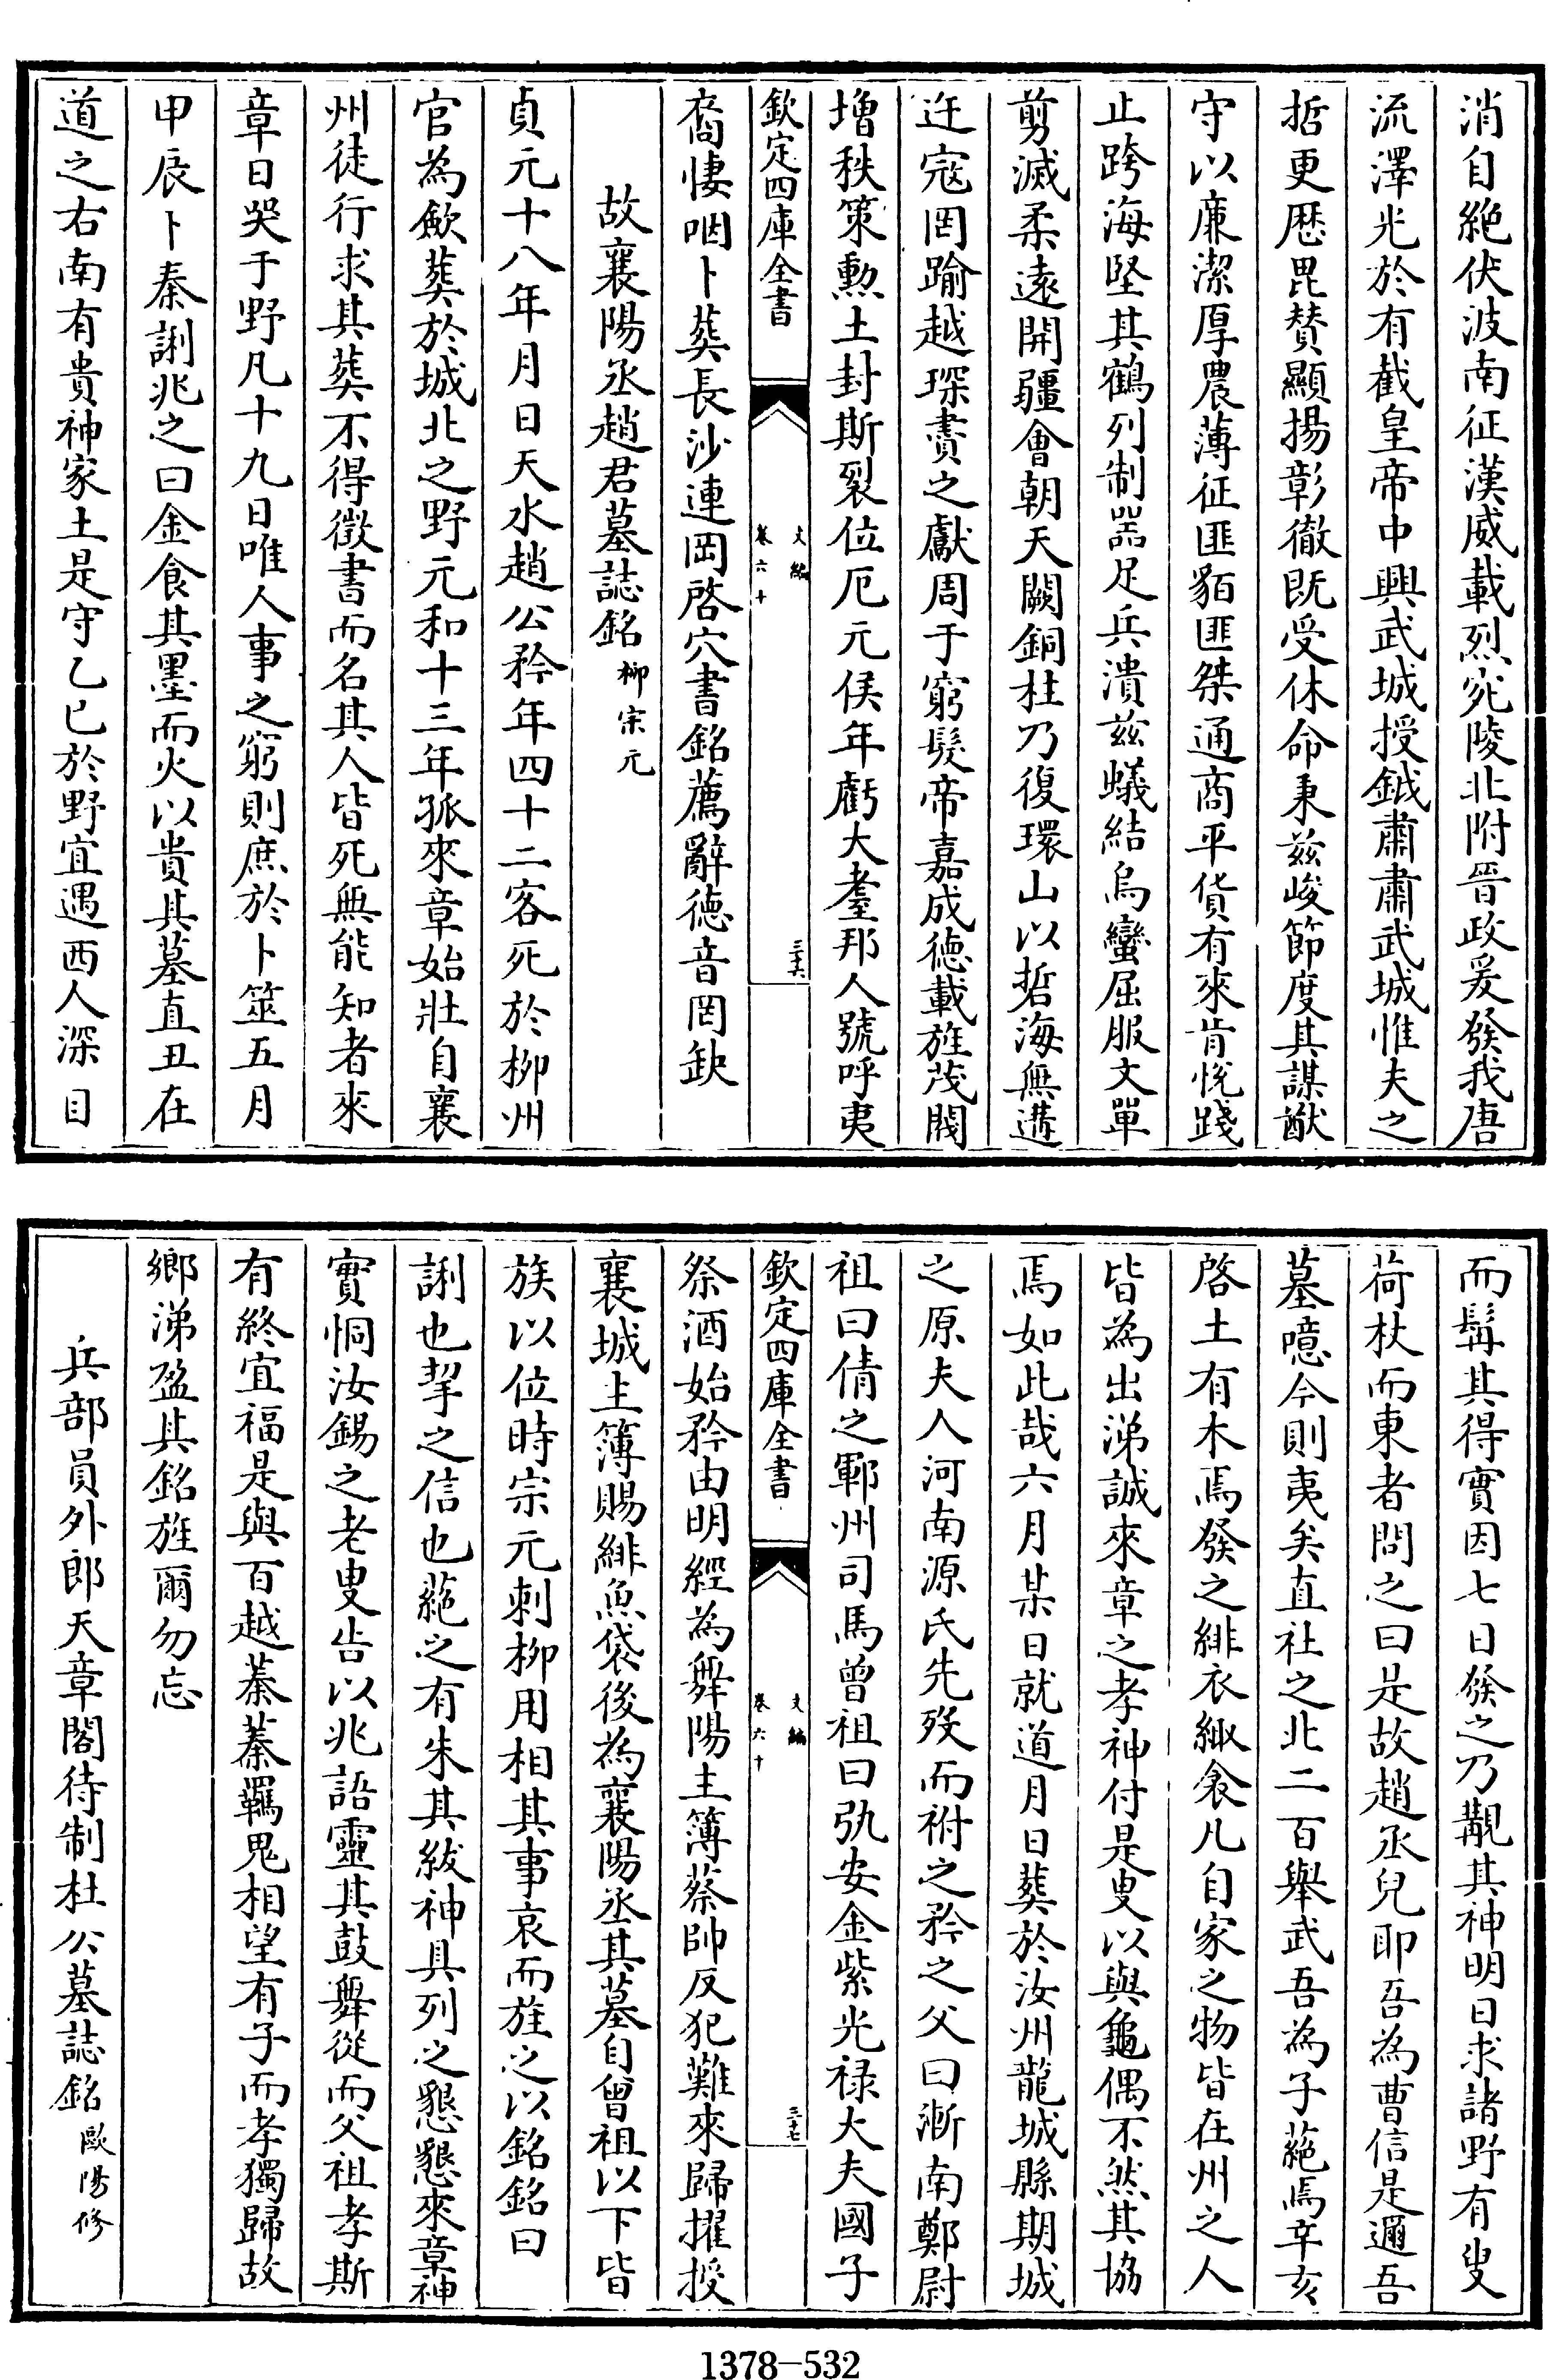 消自絶伏波南征漢威載烈宛陵北附晉政爰發我唐
流澤光於有截皇帝中興武城授鉞肅肅武城惟夫之
哲更歴毘賛顯揚彰徹既受休命秉兹峻節度其謀猷
守以廉潔厚農薄征匪貊匪桀通商平貨有來肯悅踐
止跨海堅其鶴列制噐足兵潰兹蟻結烏蠻屈服文單
剪滅柔遠開疆會朝天闕銅柱乃復環山以哲海無遘
迕寇罔踰越琛賮之獻周于窮髮帝嘉成德載旌茂閥
増秩策勲土封斯裂位厄元侯年虧大耋邦人號呼夷
欽定四庫全書
文編
卷六十
三十六
裔悽咽卜葬長沙連岡啓穴書銘薦辭徳音罔缺
故襄陽丞趙君墓誌銘 柳宗元
貞元十八年月日天水趙公矜年四十二客死於栁州
官為歛葬於城北之野元和十三年孤來章始壯自襄
州徒行求其葬不得徴書而名其人皆死無能知者來
章日哭于野凡十九日唯人事之窮則庶於卜筮五月
甲辰卜秦誗兆之曰金食其墨而火以貴其墓直丑在
道之右南有貴神家土是守乙巳於野宜遇西人深目
而髯其得實因七日發之乃覯其神明日求諸野有叟
荷杖而東者問之曰是故趙丞兒耶吾為曹信是邇吾
墓噫今則夷矣直社之北二百舉武吾為子蕝焉辛亥
啓土有木焉發之緋衣緅衾凡自家之物皆在州之人
皆為出涕誠來章之孝神付是叟以與龜偶不然其協
焉如此哉六月某日就道月日葬於汝州龍城縣期城
之原夫人河南源氏先歿而祔之矜之父曰漸南鄭尉
祖曰倩之鄆州司馬曾祖曰弘安金紫光禄大夫國子
欽定四庫全書
文編
卷六十
三十七
祭酒始矜由明經為舞陽主簿蔡帥反犯難來歸擢授
襄城主簿賜緋魚袋後為襄陽丞其墓自曾祖以下皆
族以位時宗元刺栁用相其事哀而旌之以銘銘曰
誗也挈之信也蕝之有朱其紱神具列之懇懇來章神
實恫汝錫之老叟告以兆語靈其鼓舞從而父祖孝斯
有終宜福是與百越蓁蓁羈鬼相望有子而孝獨歸故
鄉涕盈其銘旌爾勿忘
兵部員外郎天章閣待制杜公墓誌銘 歐陽修
1378-532